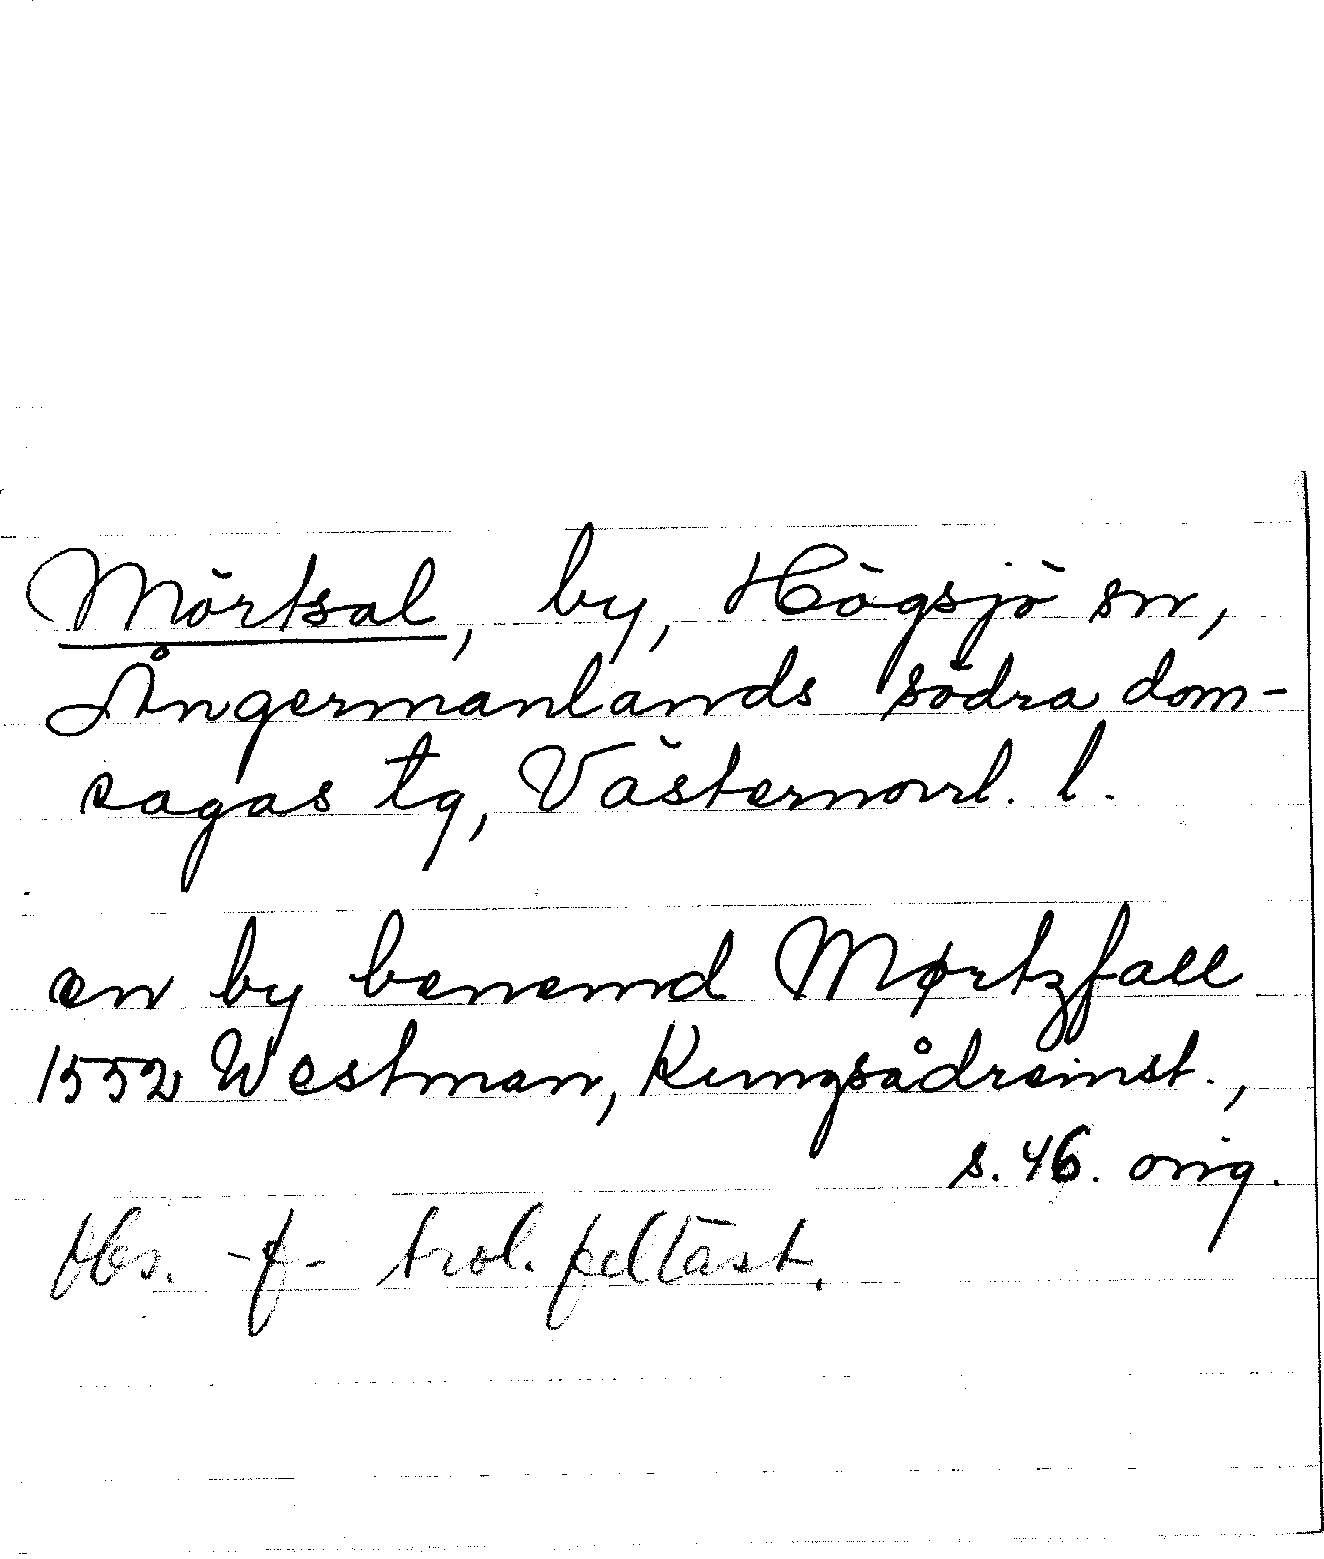 Mörtsal, by, Högsjö sn,
Ångermanlands södra dom-
sagas tg, Västernorrl. l.
en by benemd Mørtzfall
1552 Westman, Kungsådreinst.,
s. 46. orig.
Obs. -f- trol. felläst.